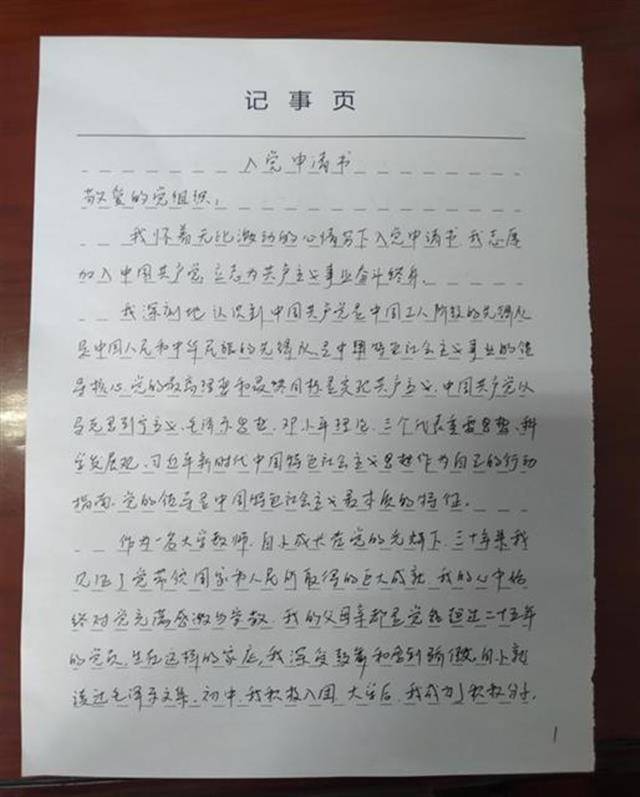 记事页
入党申请书
敬爱的党组织：
我怀着无比激动的心情写下入党申请书.我志愿
加入中国共产党,立志为共产主义事业奋斗终身.
我深刻地认识到中国共产党是中国工人阶级的先锋队
是中国人民和中华民族的先锋队,是中国特色社会主义事业的领
导核心,党的最高理想和最终目标是实现共产主义.中国共产党以
马克思列宁主义、毛泽东思想、邓小平理论、三个代表重要思想、科
学发展观、习近平新时代中国特色社会主义思想作为自己的行动
指南.党的领导是中国特色社会主义最本质的特征.
作为一名大学教师,自小成长在党的光辉下.三十年来我
见证了党带领国家和人民所取得的巨大成就.我的心中始
终对党充满感激与崇敬.我的父母亲都是党龄超过二十五年
的党员,生在这样的家庭,我深受鼓舞和感到骄傲.自小就
读过毛泽东文集.初中,我积极入团.大学后,我成为了积极分子.
1